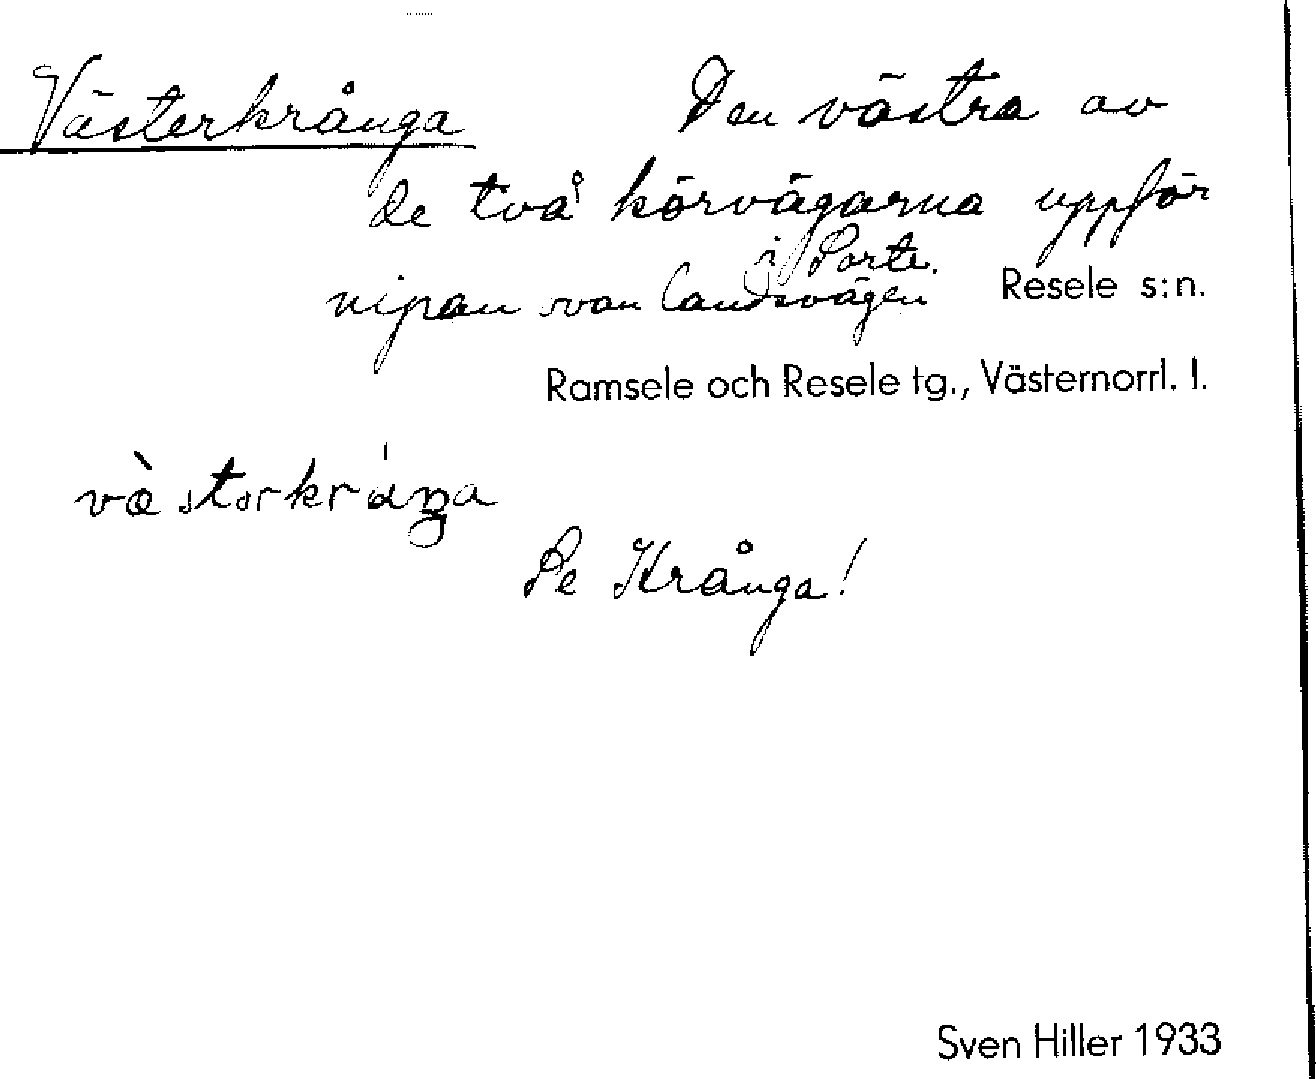 Västerkrånga Den västra av
de två körvägarna uppför
i Sorte.
nipan ovan landsvägen Resele s:n.
Ramsele och Resele tg., Västernorrl. l.
Se Krånga!
Sven Hiller 1933